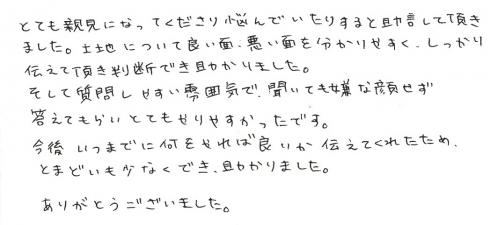 とても親見になってくださり悩んでいたりすると助言して頂き
ました。土地について良い面、悪い面を分かりやすく、しっかり
伝えて頂き判断でき助かりました。
そして質問しやすい雰囲気で、聞いても嫌な顔せず
答えてもらいとてもやりやすかったです。
今後いつまでに何をやれば良いか伝えてくれたため、
とまどいも少なくでき、助かりました。
ありがとうございました。